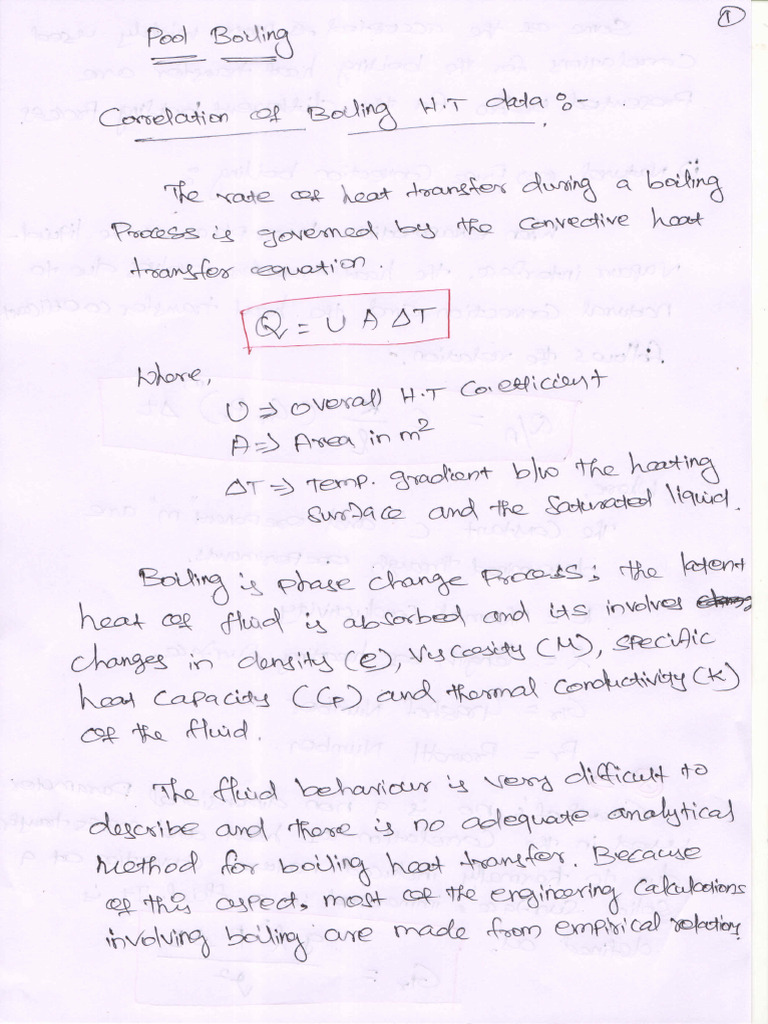 1
Pool Boiling
Correlation of Boiling H.T data :-
The rate of heat transfer during a boiling
Process is governed by the convective heat
transfer equation.
Q = U A ΔT
Where,
U ⇒ overall H.T Coefficient
A ⇒ Area in m²
ΔT ⇒ Temp. gradient b/w the heating
surface and the saturated liquid.
Boiling is phase change process; the latent
heat of fluid is absorbed and its involves
changes in density (e), Viscosity (M), specific
heat capacity (Cp) and thermal conductivity (K)
of the fluid.
The fluid behaviour is very difficult to
describe and there is no adequate analytical
method for boiling heat transfer. Because
of this aspect, most of the engineering calculations
involving boiling are made from empirical relations